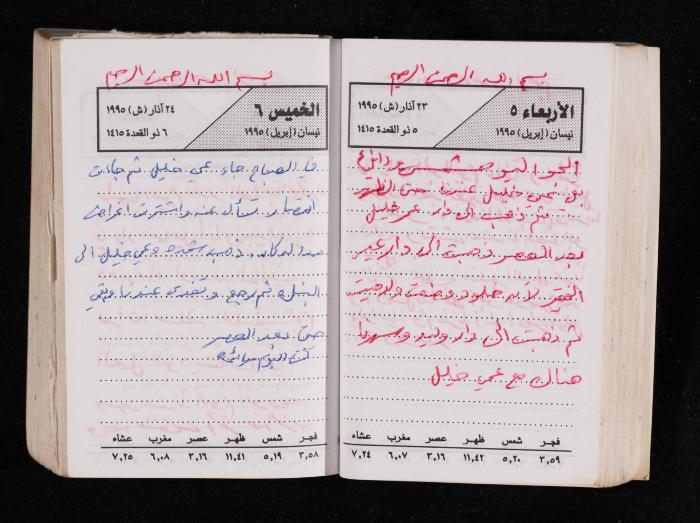 بسم الله الرحمن الرحيم
الأربعاء ٥
٢٣ آذار (ش) ١٩٩٥
نيسان (إبريل) ١٩٩٥
٥ ذو القعدة ١٤١٥
الجو اليوم شمس ودافئ
عمي خليل عندنا حتى الظهر
ثم ذهب الى دار عمي خليل
بعد العصر ذهبت الى دار عبد
ثم ذهبت الى دار وليد وسهرنا
هناك مع عمي خليل
فجر شمس ظهر عصر مغرب عشاء
٣,٥٩ ٥,٢٠ ١١,٤٢ ٣,١٦ ٦,٠٧ ٧,٢٤
بسم الله الرحمن الرحيم
الخميس ٦
٢٤ آذار (ش) ١٩٩٥
نيسان (إبريل) ١٩٩٥
٦ ذو القعدة ١٤١٥
في الصباح جاء عمي خليل ثم جاءت
تسأل عنه واشترت اغراض
من الدكان. ذهب وعمي خليل الى
ثم رجع وتغدى عندنا وبقي
حتى بعد العصر
كنت اليوم صائمة
فجر شمس ظهر عصر مغرب عشاء
٣,٥٨ ٥,١٩ ١١,٤١ ٣,١٦ ٦,٠٨ ٧,٢٥